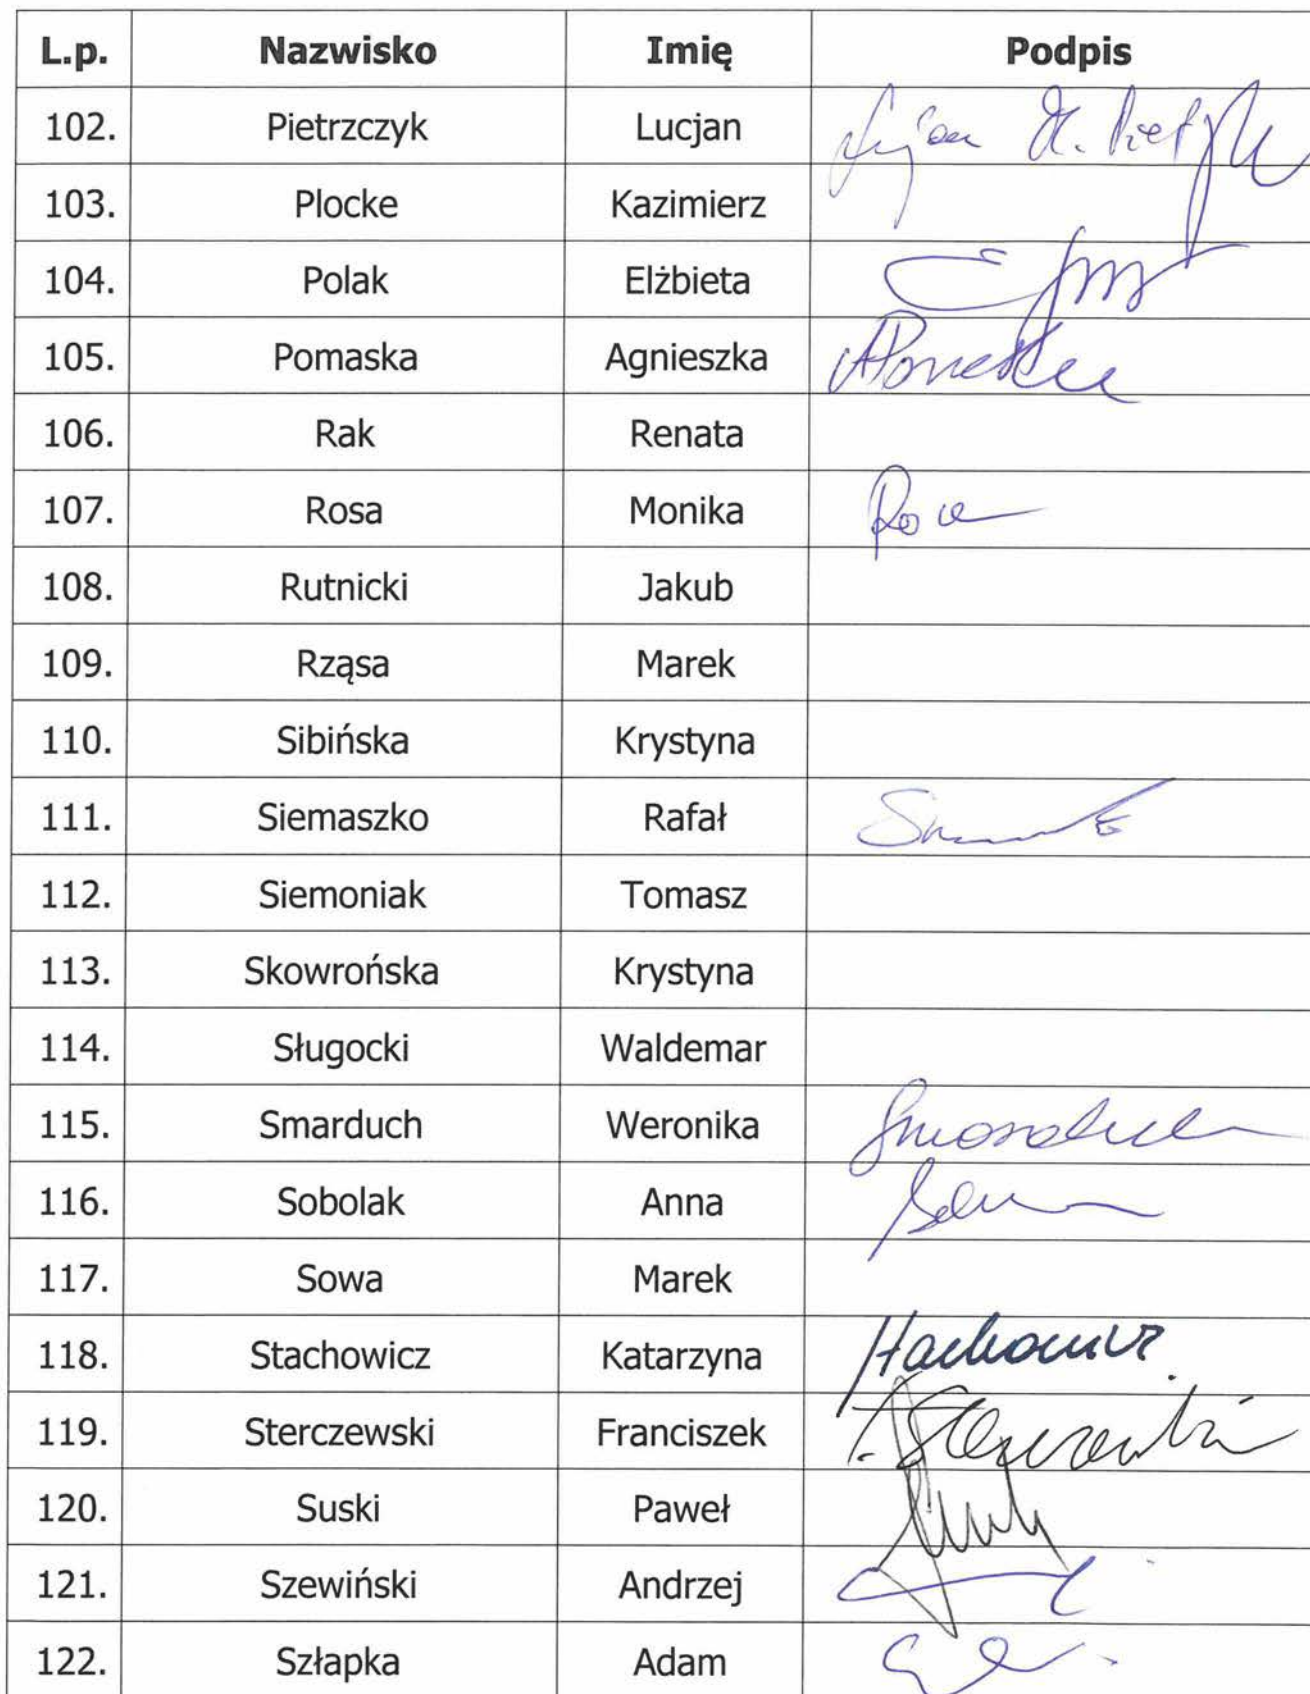 L.p. Nazwisko Imię Podpis
102. Pietrzczyk Lucjan
103. Plocke Kazimierz
104. Polak Elżbieta
105. Pomaska Agnieszka
106. Rak Renata
107. Rosa Monika
108. Rutnicki Jakub
109. Rząsa Marek
110. Sibińska Krystyna
111. Siemaszko Rafał
112. Siemoniak Tomasz
113. Skowrońska Krystyna
114. Sługocki Waldemar
115. Smarduch Weronika Smarduch
116. Sobolak Anna
117. Sowa Marek
118. Stachowicz Katarzyna Stachowicz
119. Sterczewski Franciszek
120. Suski Paweł
121. Szewiński Andrzej
122. Szłapka Adam